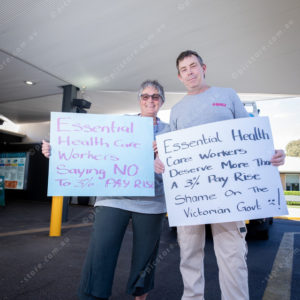 Essential
Health Care
Workers
Saying NO
To 3% PAY RISE
Essential Health
Care Workers
Deserve More Than
A 3% Pay Rise
Shame On The
Victorian Govt :!